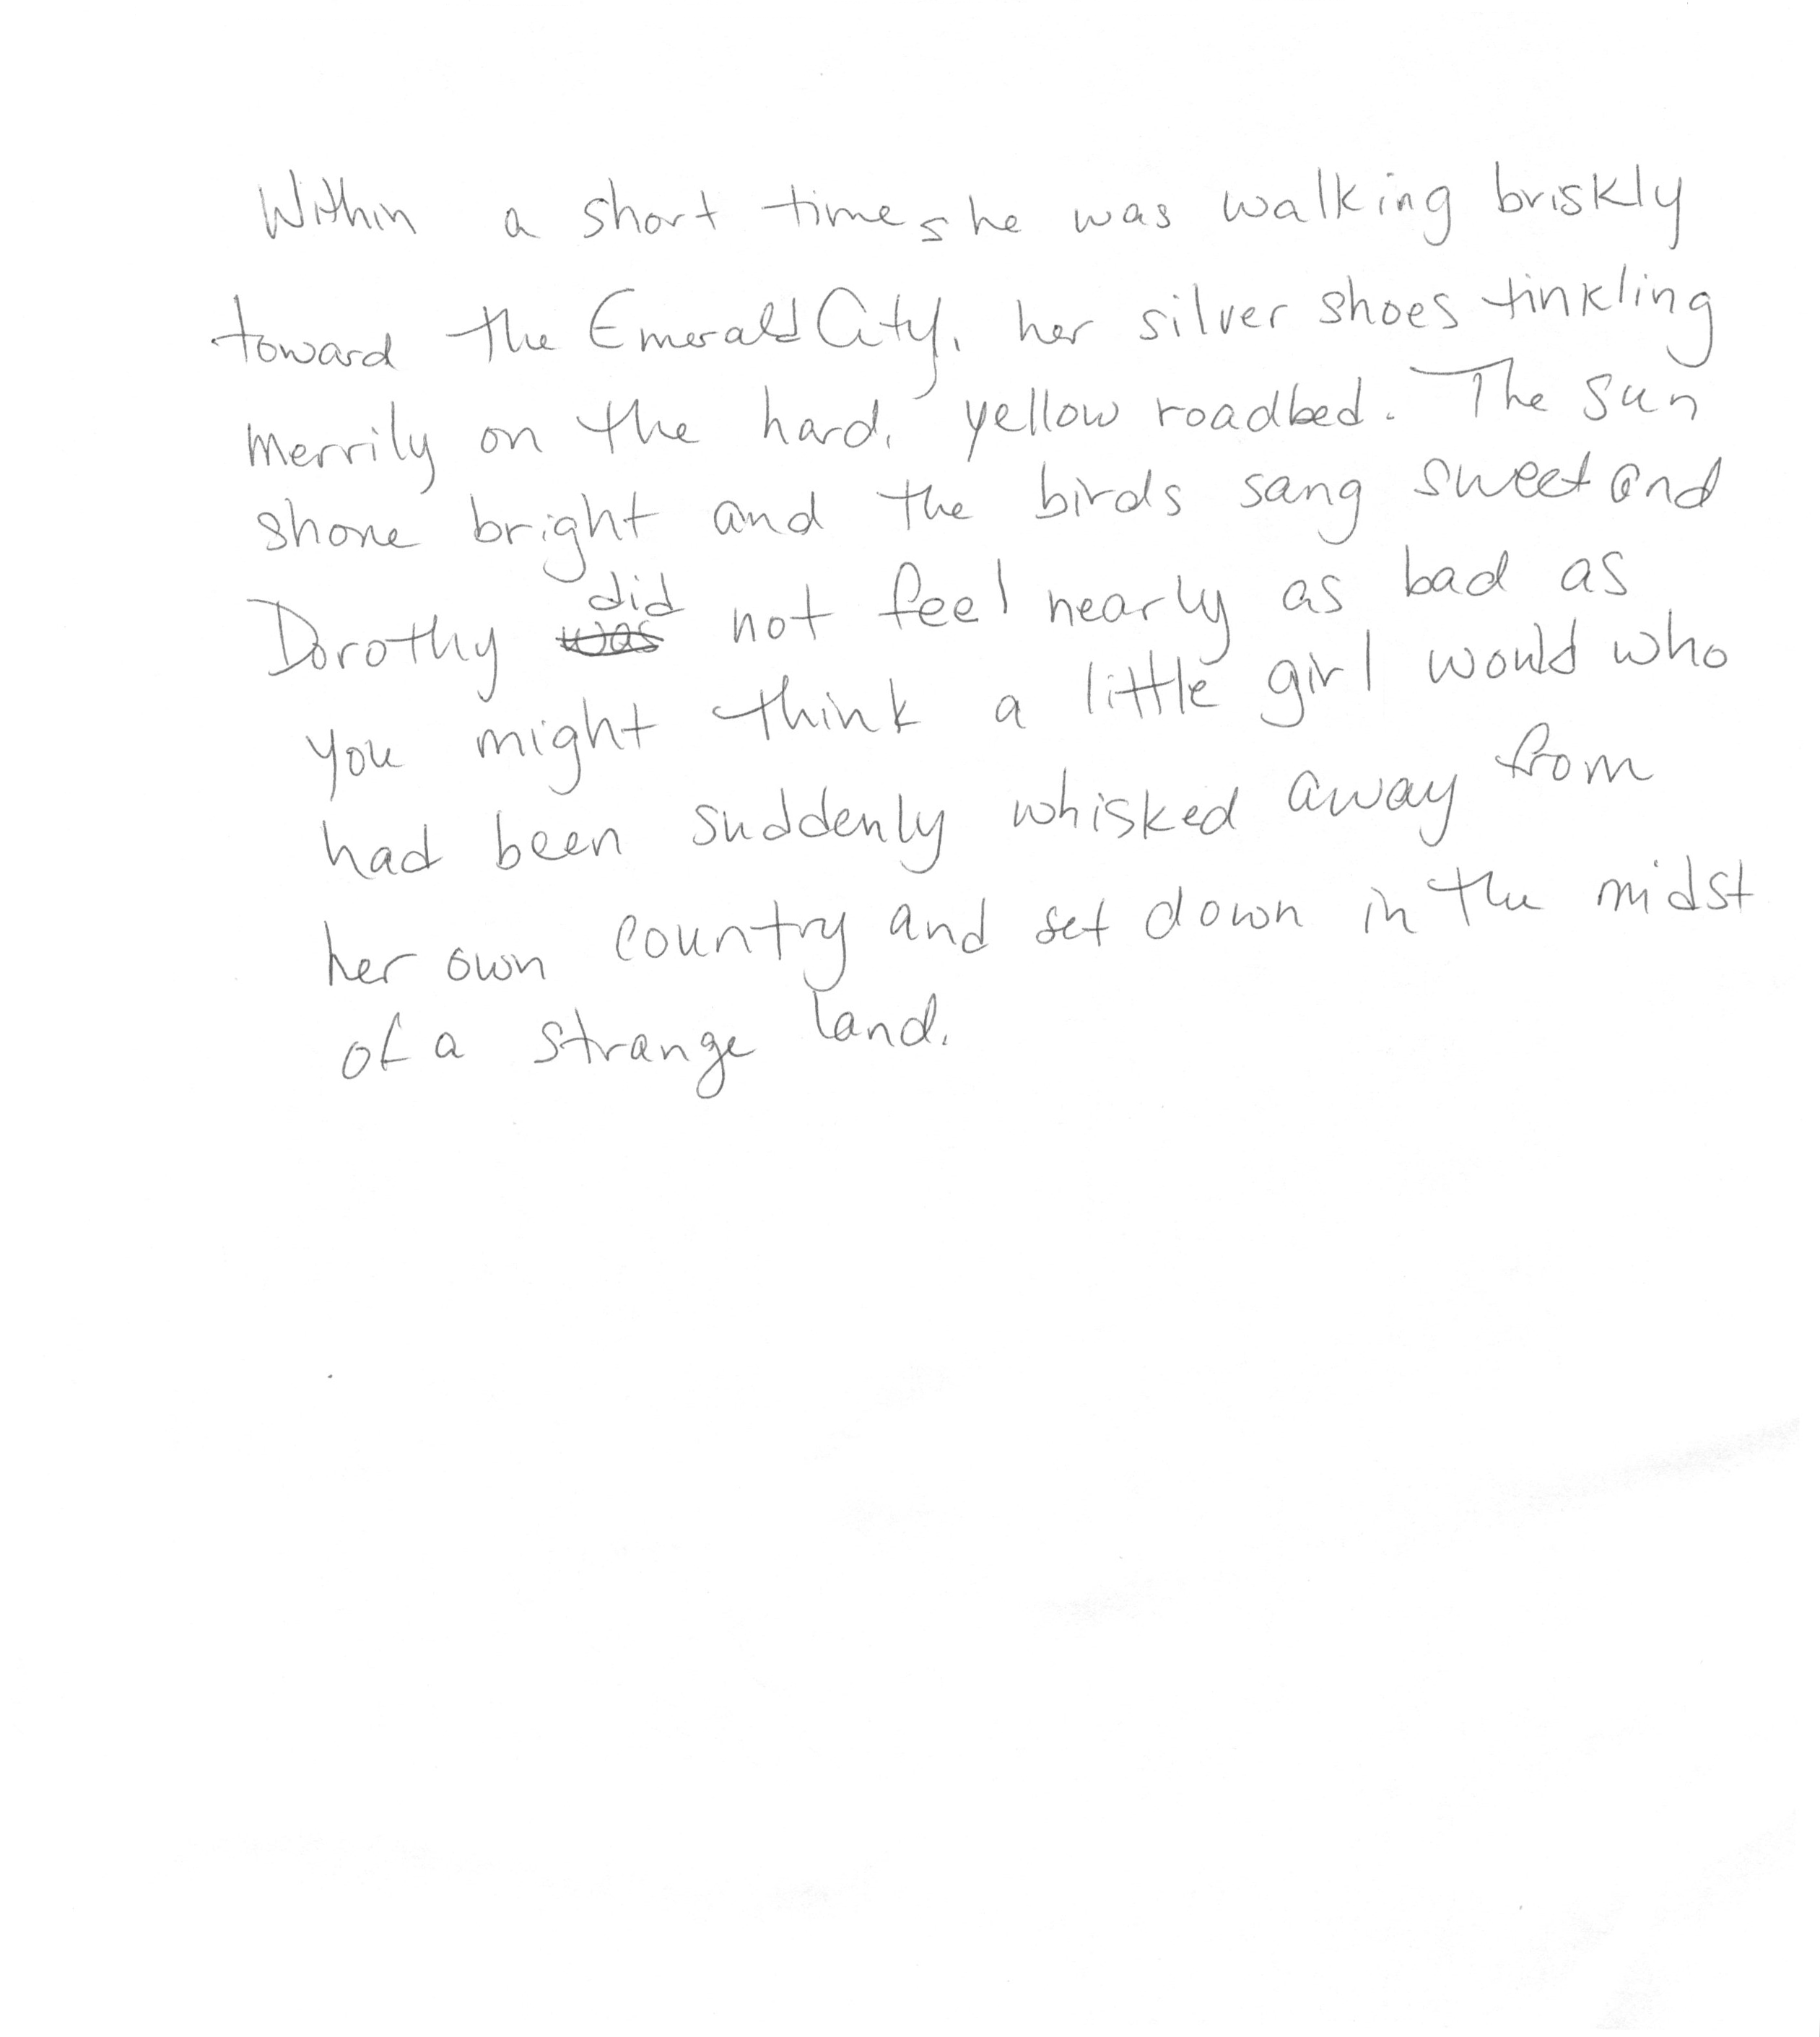 Within a short time she was walking briskly
toward the Emerald City, her silver shoes tinkling
merrily on the hard, yellow roadbed. The sun
shone bright and the birds sang sweet and
Dorothy did not feel nearly as bad as
you might think a little girl would who
had been suddenly whisked away from
her own country and set down in the midst
of a strange land.